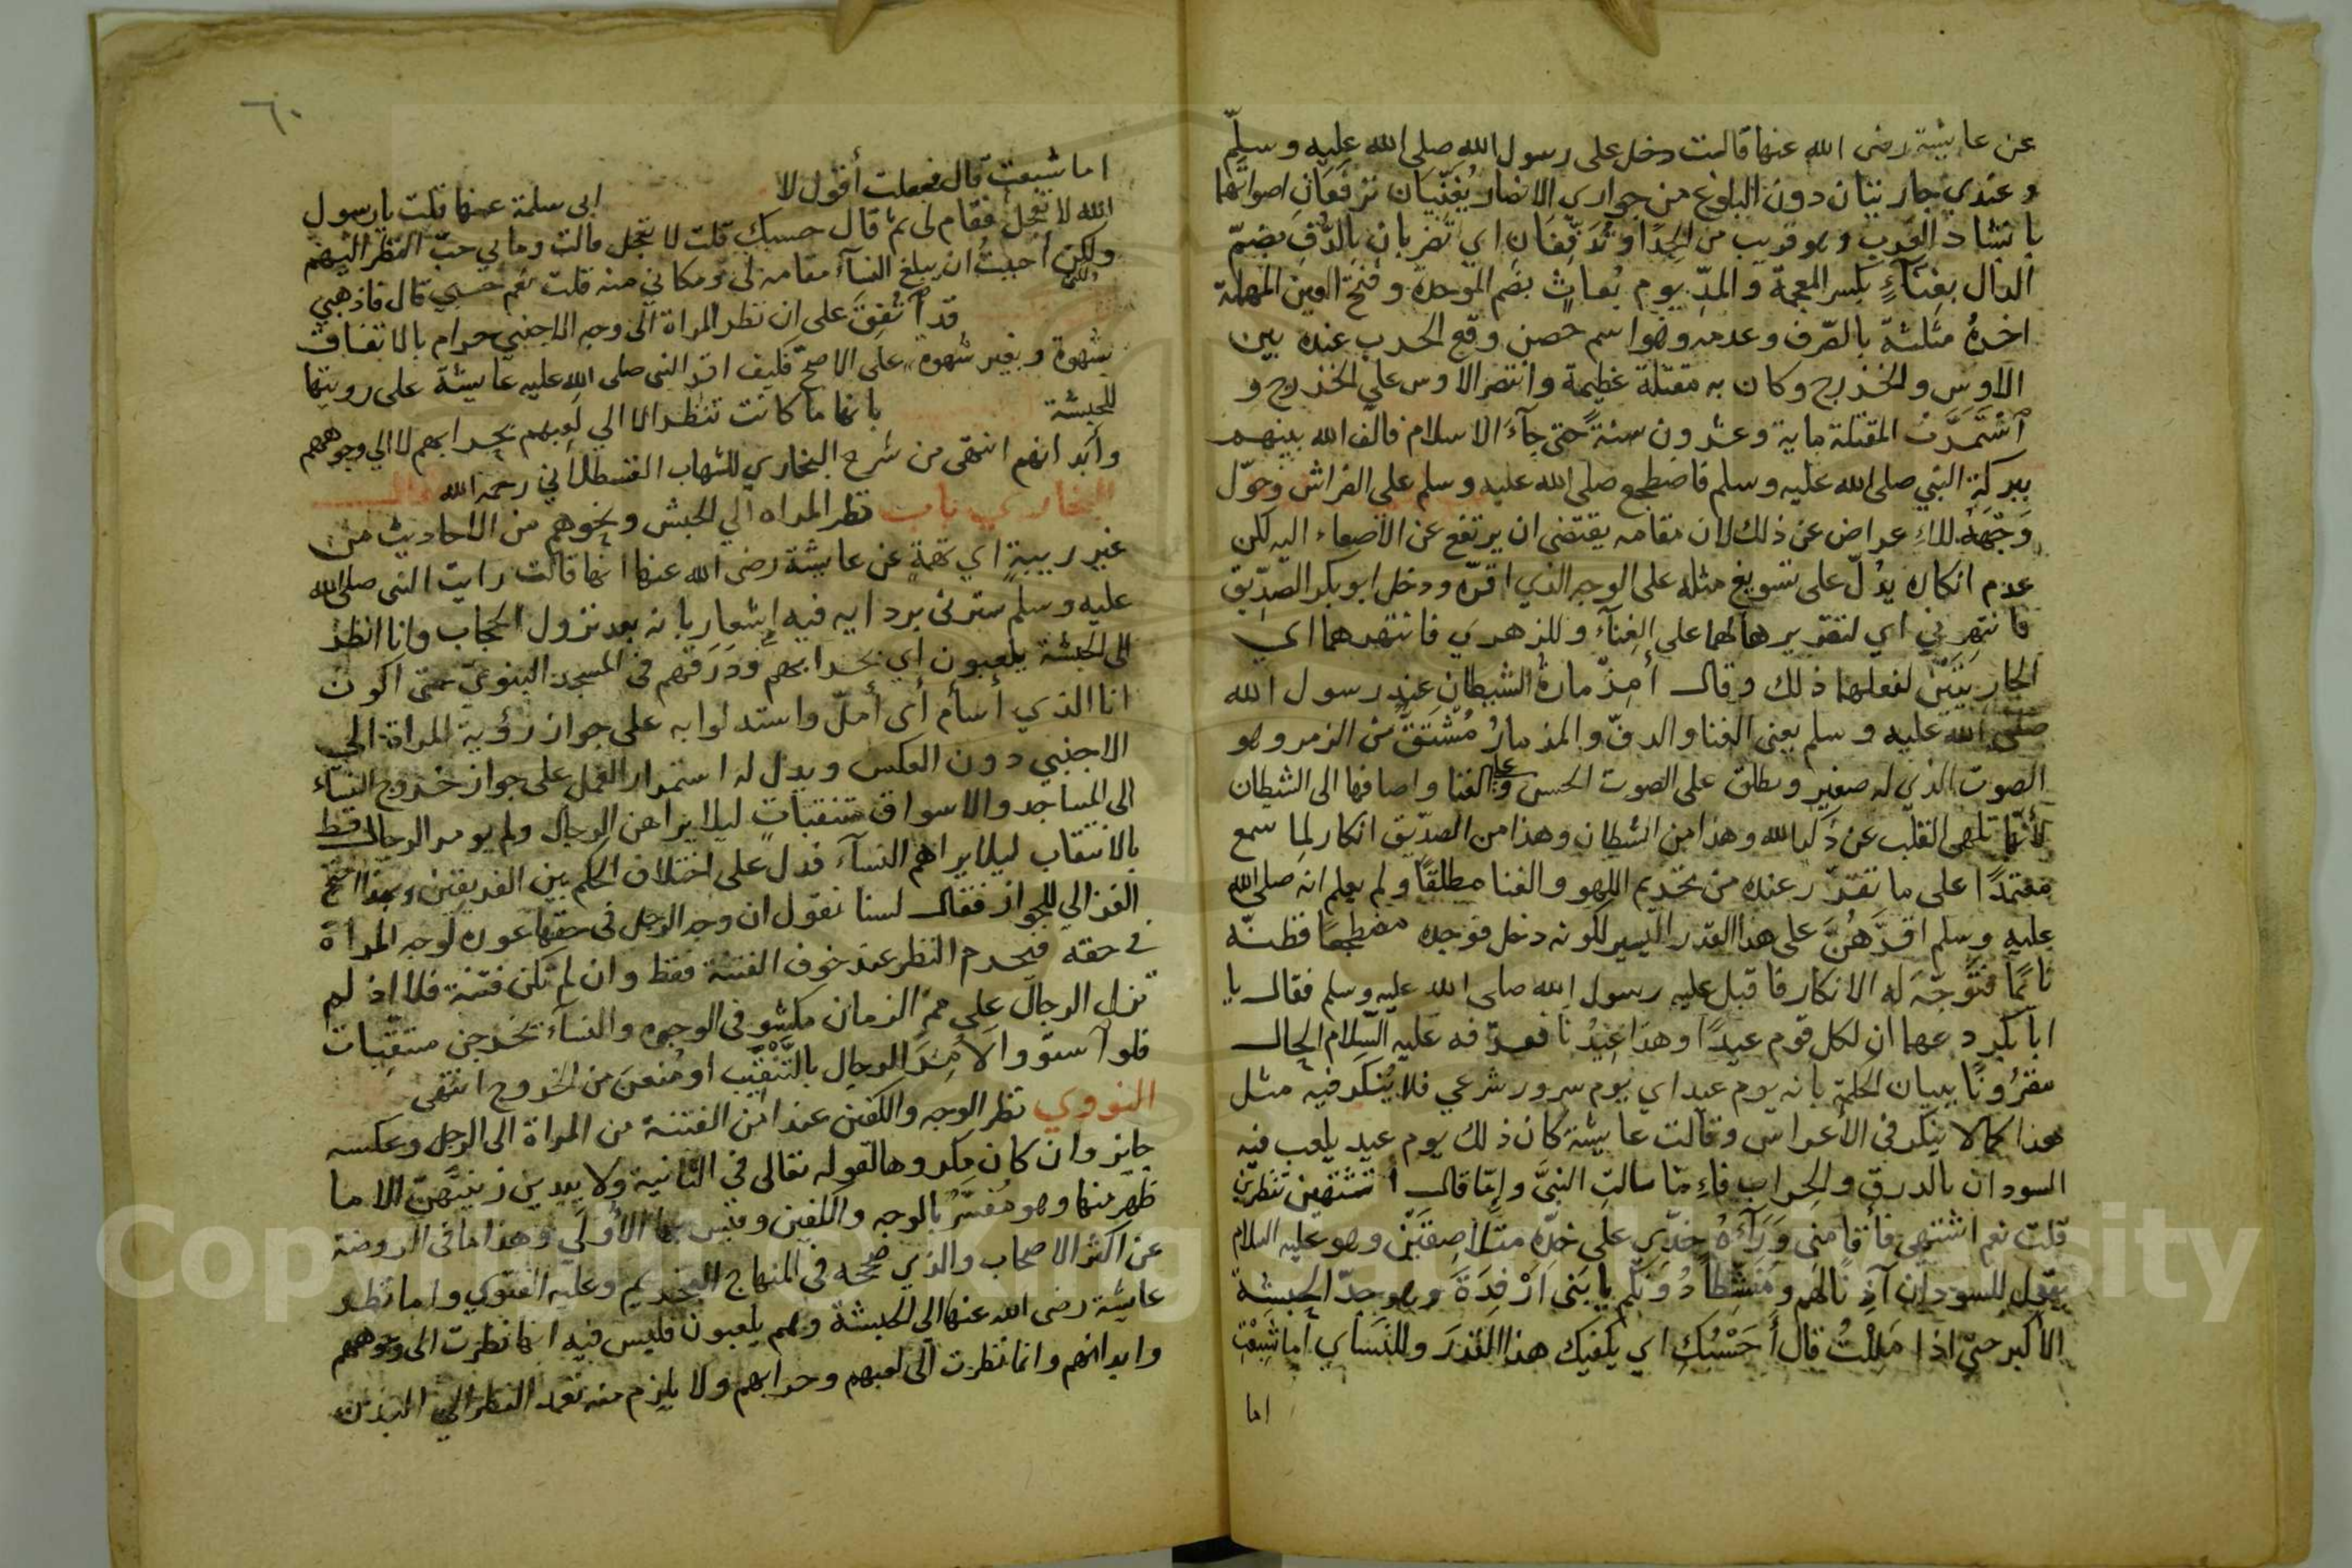 عن عايشة رضى الله عنها قالت دخل على رسول الله صلى الله عليه وسلم
وعندي جاريتان دون البلوغ من جواري الانصار يُغَنِّيان ترفعان اصواتهما
بانشاد العرب وهو قريب من الحِدَا وتُدَفِّفان اي تضربان بالدُّفِ بضمّ
الدال بغِنَآءٍ بكسر المعجمة والمدّ يوم بُعاثٍ بضم الموحدة وفتح العين المهملة
اخرهُ مثلثة بالصّرف وعدمه وهو اسم حصن وقع الحرب عنده بين
الاوس والخزرج وكان به مقتلة عظيمة وانتصر الاوس على الخزرج و
اَسْتَمَرَّت المقتلة ماية وعشرون سنةً حتى جآءَ الاسلام فالّف الله بينهم
ببركة النبي صلى الله عليه وسلم فاضطجع صلى الله عليه وسلم على الفراش وحَوّل
وَجْهَهُ للاِعراض عن ذلك لان مقامه يقتضى ان يرتفع عن الاصغاء اليه لكن
عدم انكاره يدُلّ على تسويغ مثله على الوجه الذي اقرّه ودخل ابو بكر الصدِّيق
فانتهرني اي لتقريرهالهما على الغِنآء وللزهري فانتهرهما اي
الجاريَتَيْن لفعلهما ذلك وقال أمِزْمارة الشيطان عند رسول الله
صلى الله عليه وسلم يعنى الغنا والدفّ والمزمارُ مُشْتَقٌّ من الزمر وهو
الصوت الذي له صفير ويطلق على الصوت الحسن وعلى الغنا واضافها الى الشيطان
لأنّها تلهى القلب عن ذكر الله وهذا من الشيطان وهذا من الصدّيق انكار لِما سمع
معتمدًا على ما تقرّر عنده من تحريم اللهو والغنا مطلقًا ولم يعلم انه صلى الله
عليه وسلم اقرَّهُنَّ على هذا القدر اليسير لكونه دخل فوجده مضطجعًا فظنّه
نايمًا فتوَجَّهَ له الانكار فاقبل عليه رسول الله صلى الله عليه وسلم فقال يا
ابا بكر دعهما ان لكل قوم عيدًا وهذا عِيدُنا فعرّفه عليه السّلام الحال
مقرُونًا ببيان الحكمة بانه يوم عيد اي يوم سرور شرعي فلا يُنكَر فيه مثل
هذا كما لا ينكر فى الأعراس وقالت عايشة كان ذلك يوم عيد يلعب فيه
السودان بالدرق والحِراب فاِمّا سالت النبىَّ واِمّا قال أتشتهين تنظرين
قلت نعم اشتهى فأَقامنى وَرَآءَهُ خدّي على خدّه متلاصقَيْن وهو عليه السلام
يقول للسودان آذِنًا لهم ومنشّطًا دُونَكُم يا بَنى اَرْفِدَةَ وهو جدّ الحبشة
الاكبر حتى اذا مَلِلْتُ قال أَحَسْبُكِ اي يكفيك هذا القدرَ وللنساي اما شَبِعْتِ
اما
٦٠
اما شبعت قال فجعلت أقول لا ابى سلمة عنها قلت يا رسول
الله لا تعجل فقام لى ثم قال حسبك قلت لا تعجل قالت وما بي حبّ النظر اليهم
ولكن احببتُ ان يبلغ النسآء مقامه لى ومكاني منه قلت نعم حسبي قال فاذهبي
قد اَتُفِقَ على ان نظر المراة الى وجه الاجنبي حرام بالاتفاق
بشهوة وبغير شهوة على الاصحّ فكيف اقرّ النبى صلى الله عليه عايشة على رويتها
للحبشة بانها ما كانت تنظر الا الي لعِبهم بحرابهم لا الي وجوههم
وابدانهم انتهى من شرح البخاري للشهاب القسطلاني رحمه الله قال
البخاري باب نظر المراه الي الحبش ونحوهم من الاحاديث من
غير ريبةٍ اي تهمةٍ عن عايشة رضى الله عنها انها قالت رايت النبى صلى الله
عليه وسلم سترنى بردايه فيه اِشعار بانه بعد نزول الحجاب وانا انظر
الى الحبشة يلعبون اي بحرابهم ودَرَقهم فى المسجد النبويّ حتى اكون
انا الذي أسأم أى أملّ واستدلوا به على جواز رؤية المراة الى
الاجنبي دون العكس ويدل له استمرار العمل على جواز خروج النسآء
الى المساجد والاسواق متنقباتٍ ليلا يراهن الرجال ولم يومر الرجال قط
بالانتقاب ليلا يراهم النسآء فدل على اختلاف الحكم بين الفريقين وبهذا احتج
الغزالي للجواز فقال لسنا نقول ان وجه الرجل فى حقها عوره لوجه المراة
في حقه فيحرم النظر عند خوف الفتنة فقط وان لم تكن فتنة فلا اِذ لم
تزل الرجال على ممرّ الزمان مكشوفى الوجوه والنسآء يخرجن متنقِّبات
فلو آستووا لاَمُرَ الرجال بالتَّنَقُّبِ او مُنعن من الخروج انتهى
النووي نظر الوجه والكفين عند امن الفتنة من المراة الى الرجل وعكسه
جايز وان كان مكروها لقوله تعالى فى الثانية ولا يبدين زينتهنّ الا ما
ظهر منها وهو مُفَسَّرٌ بالوجه والكفين وقيس بها الأولَي وهذا ما فى الروضة
عن اكثر الاصحاب والذي صححه فى المنهاج التحريم وعليه الفتوي واما نظر
عايشة رضى الله عنها الي الحبشة وهم يلعبون فليس فيه انها نظرت الى وجوههم
وابدانهم وانما نظرت الى لعبهم وحرابهم ولا يلزم منه تعمد النظر الي البدن